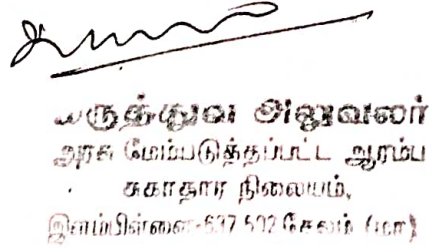 மருத்துவ அலுவலர்
அரசு மேம்படுத்தப்பட்ட ஆரம்ப
சுகாதார நிலையம்,
இளம்பிள்ளை-637 502 சேலம் (மா)